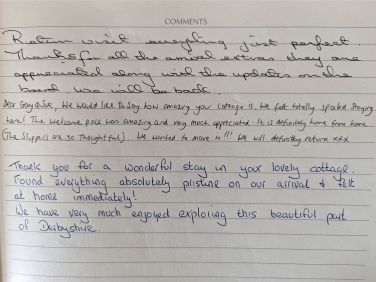 COMMENTS
Return visit everything just perfect.
Thanks for all the annual extras they are
appreciated along with the updates on the
board we will be back.
Dear Gay & Clive, We would like to say how amazing your cottage is. We felt totally spoiled staying
here! The welcome pack was amazing and very much appreciated. It is definitely home from home.
(The slippers are so thoughtful). We wanted to move in!!! We will definitely return xxx
Thank you for a wonderful stay in your lovely cottage.
Found everything absolutely pristine on our arrival & felt
at home immediately!
We have very much enjoyed exploring this beautiful part
of Derbyshire.